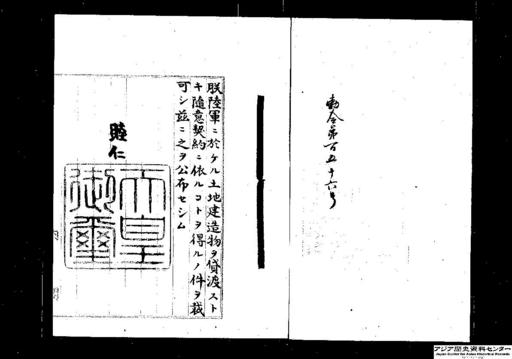 勅令第百五十六号
朕陸軍ニ於ケル土地建造物ヲ貸渡スト
キ随意契約ニ依ルコトヲ得ルノ件ヲ裁
可シ茲ニ之ヲ公布セシム
睦仁
天皇
御璽
アジア歴史資料センター
Japan Center for Asian Historical Records